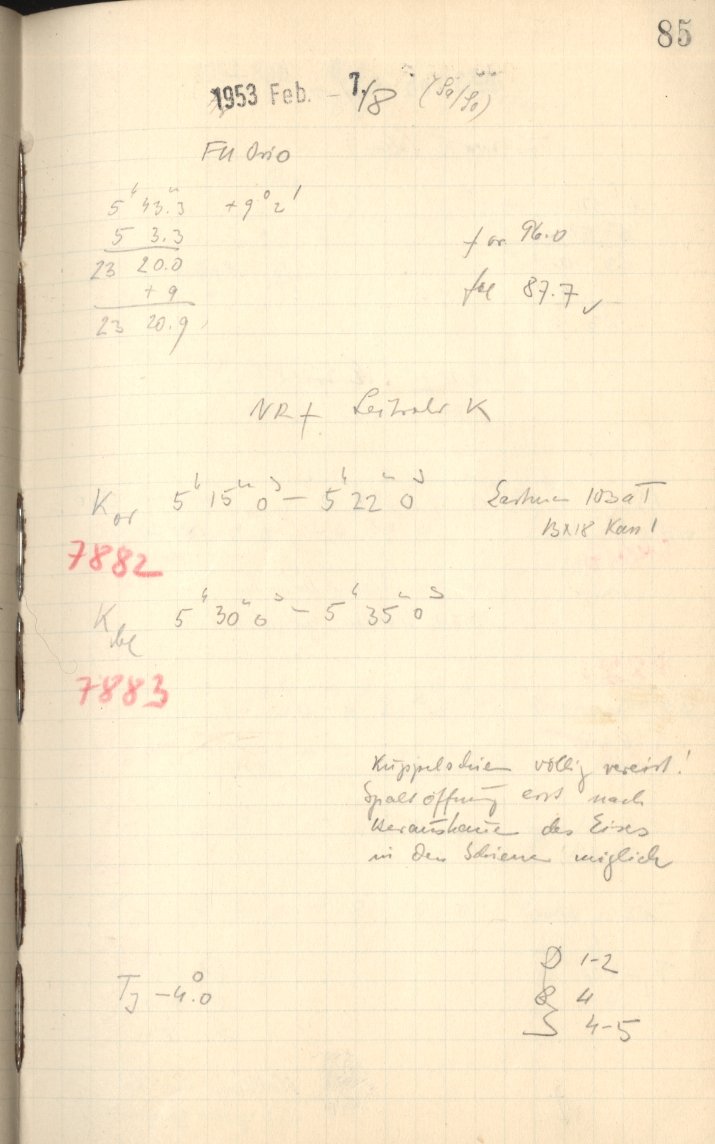 85
1953 Feb. - 7./8 (Sa/So)
FU Orio
5ʰ 43.ᵐ3 + 9° 2'
5 3.3
23 20.0
+ 9
23 20.9
f or 96.0
f bl 87.7 ✓
NR f Leitrohr K
K or 5ʰ 15ᵐ 0ˢ - 5ʰ 22ᵐ 0ˢ Eastman 103aT
Kass 1
7882
K bl 5ʰ 30ᵐ 0ˢ - 5ʰ 35ᵐ 0ˢ
7883
Kuppelschien völlig vereist!
Spaltöffnung erst nach
Heraushauen des Eises
in den Schienen möglich
TJ -4.°0
D 1-2
R 4
S 4-5